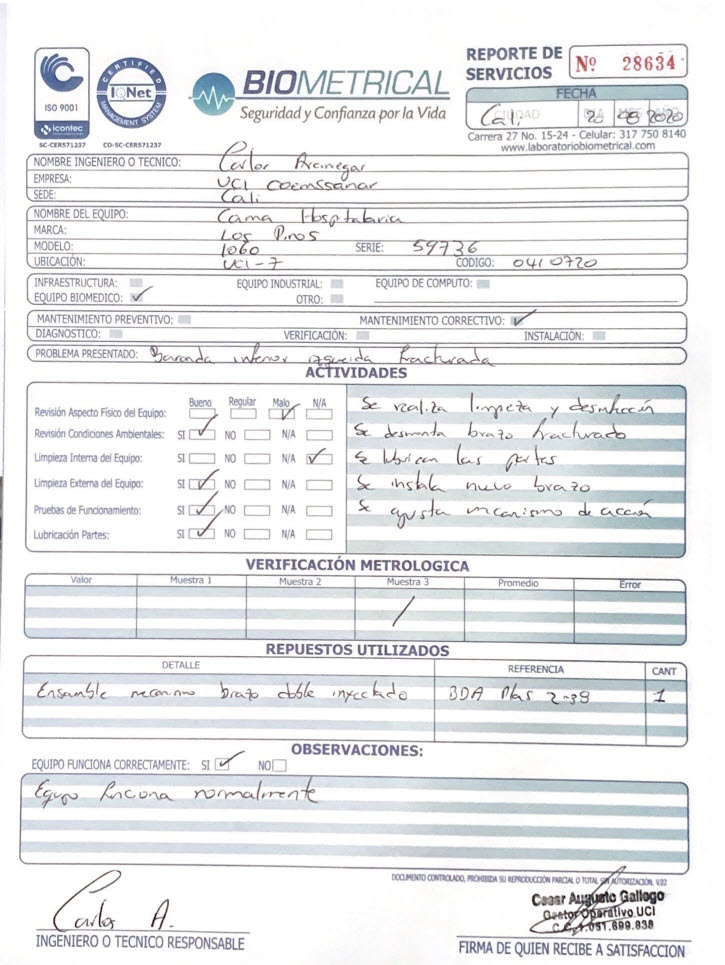 REPORTE DE SERVICIOS Nº 28634
ISO 9001
icontec
SC-CER571237
CERTIFIED
IQNet
MANAGEMENT SYSTEM
CO-SC-CER571237
BIOMETRICAL
Seguridad y Confianza por la Vida
FECHA
CIUDAD DIA MES AÑO
Cali 20 08 2020
Carrera 27 No. 15-24 - Celular: 317 750 8140
www.laboratoriobiometrical.com
NOMBRE INGENIERO O TECNICO: Carlos
EMPRESA: UCI coemssanar
SEDE: Cali
NOMBRE DEL EQUIPO: Cama Hospitalaria
MARCA: Los Pinos
MODELO: 1060 SERIE: 59736
UBICACIÓN: UCI-7 CODIGO: 0410720
INFRAESTRUCTURA: EQUIPO INDUSTRIAL: EQUIPO DE COMPUTO:
EQUIPO BIOMEDICO: ✓ OTRO:
MANTENIMIENTO PREVENTIVO: MANTENIMIENTO CORRECTIVO: ✓
DIAGNOSTICO: VERIFICACIÓN: INSTALACIÓN:
PROBLEMA PRESENTADO: Baranda inferior izqueida fracturada
ACTIVIDADES
Bueno Regular Malo N/A
Revisión Aspecto Físico del Equipo: ✓
Revisión Condiciones Ambientales: SI ✓ NO N/A
Limpieza Interna del Equipo: SI NO N/A ✓
Limpieza Externa del Equipo: SI ✓ NO N/A
Pruebas de Funcionamiento: SI ✓ NO N/A
Lubricación Partes: SI ✓ NO N/A
Se realiza limpieza y desinfección
Se desmonta brazo fracturado
Se lubrican las partes
Se instala nuevo brazo
Se ajusta mecanismo de acción
VERIFICACIÓN METROLOGICA
Valor Muestra 1 Muestra 2 Muestra 3 Promedio Error
/
REPUESTOS UTILIZADOS
DETALLE REFERENCIA CANT
Ensamble mecanismo brazo doble inyectado BDA Plas 2-38 1
OBSERVACIONES:
EQUIPO FUNCIONA CORRECTAMENTE: SI ✓ NO
Equipo funciona normalmente
DOCUMENTO CONTROLADO, PROHIBIDA SU REPRODUCCIÓN PARCIAL O TOTAL SIN AUTORIZACIÓN. V.02
Carlos A.
INGENIERO O TECNICO RESPONSABLE
Cesar Augusto Gallego
Gestor Operativo UCI
C.C. 1.051.699.838
FIRMA DE QUIEN RECIBE A SATISFACCION